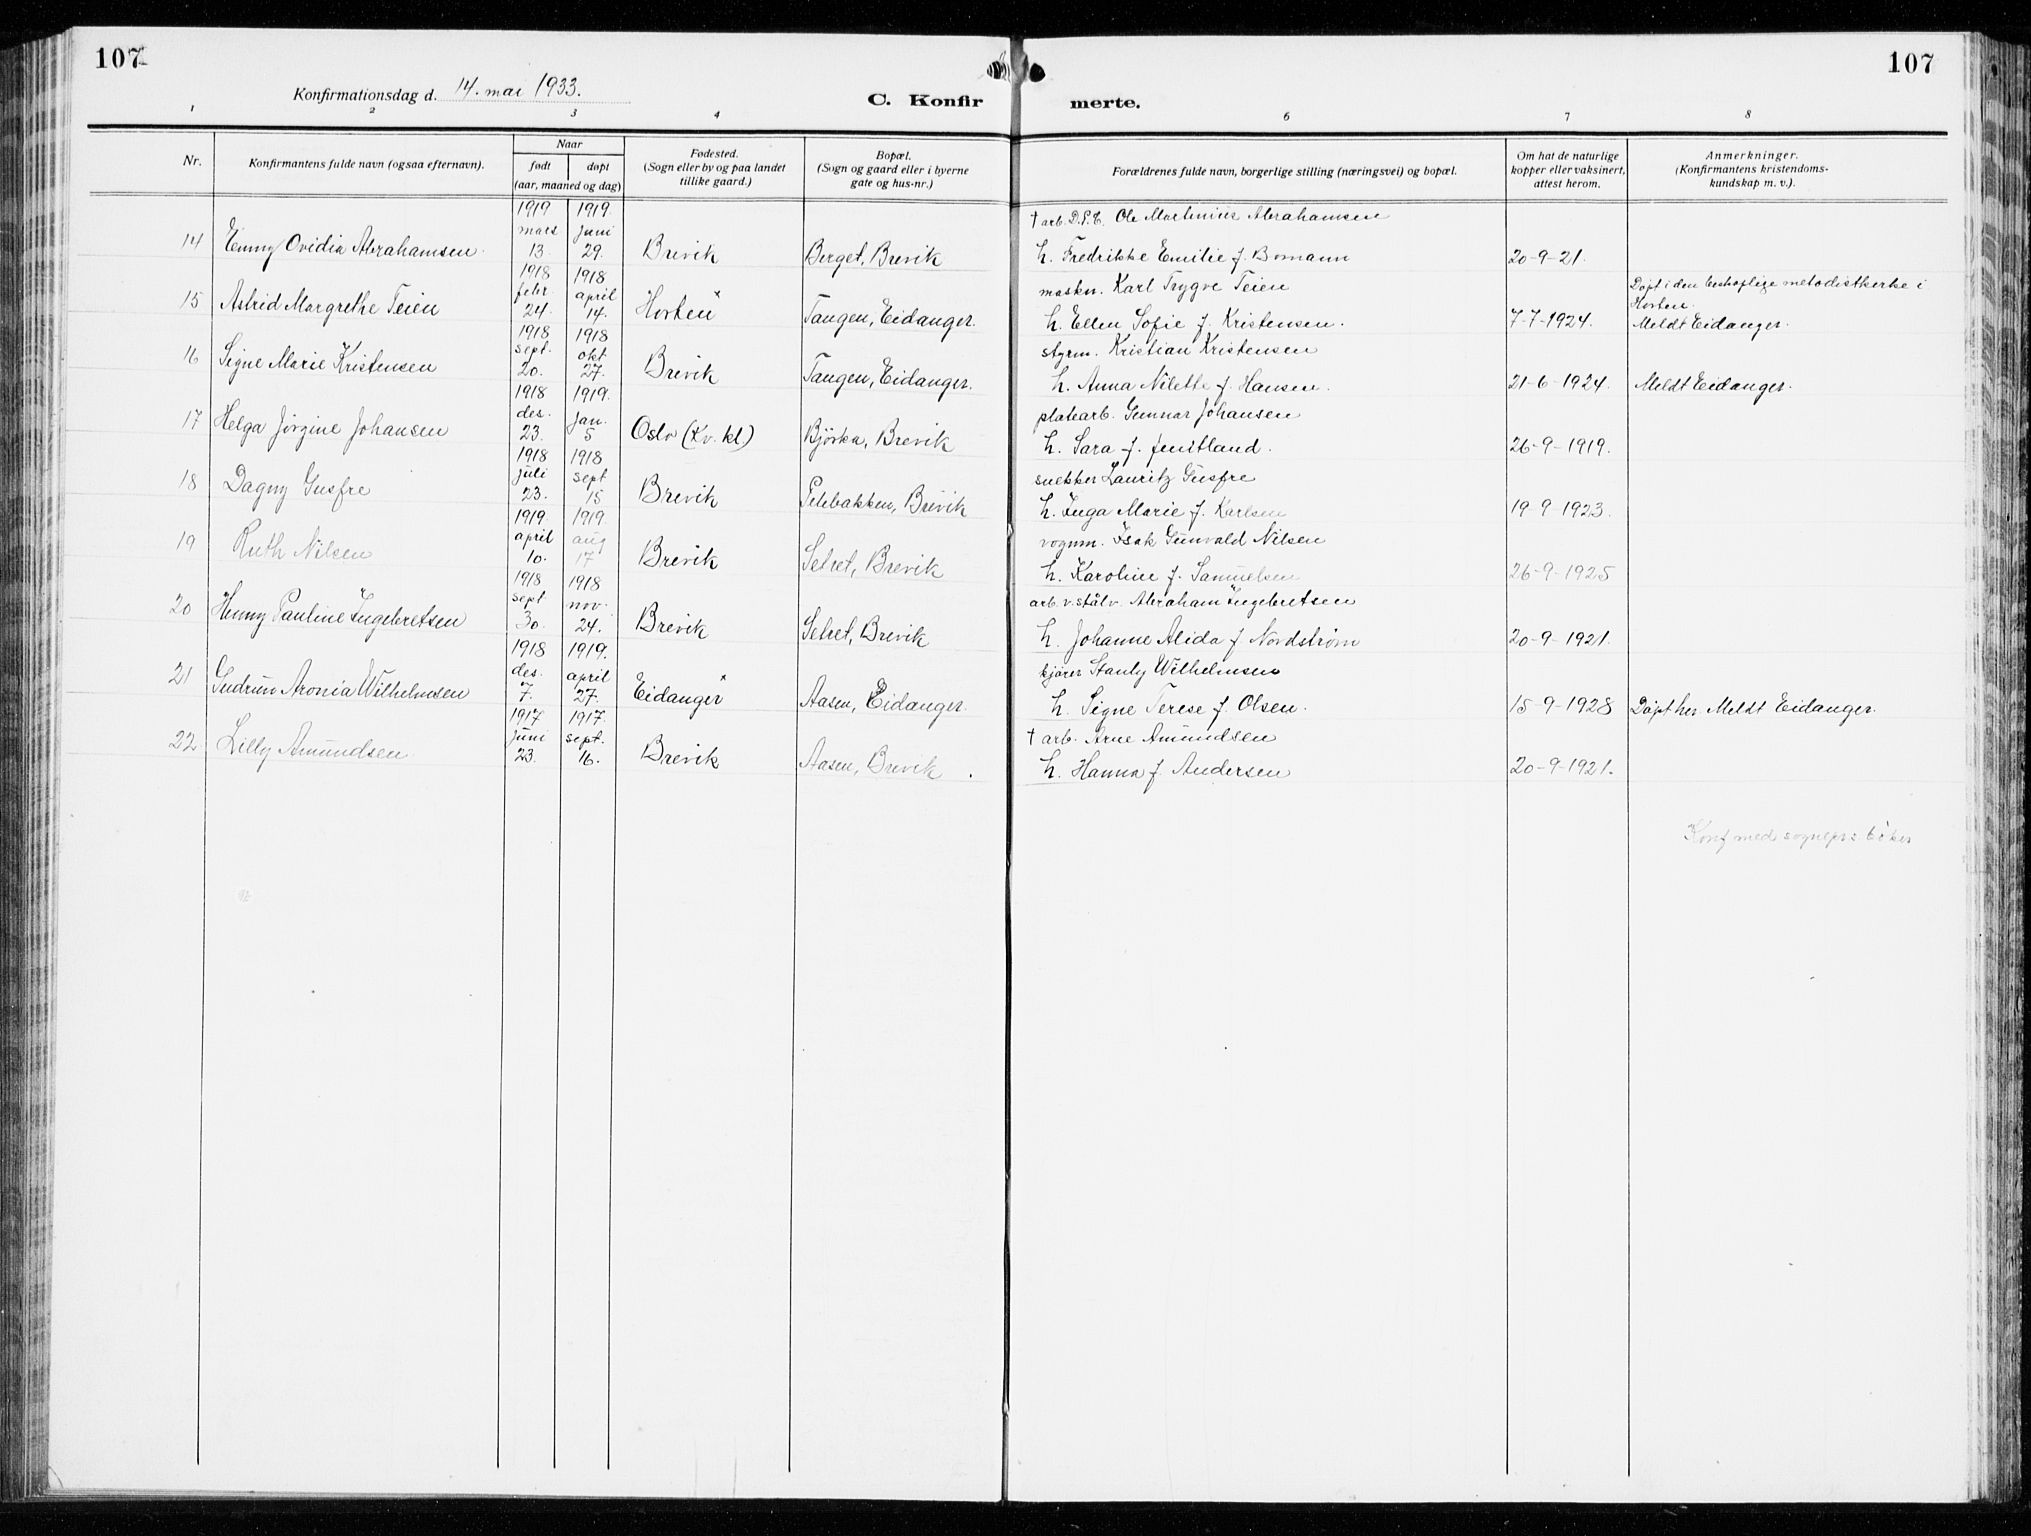 107 107
Konfirmationsdag d. 14. mai 1933. C. Konfir merte.
1 2 3 4 6 7 8
Nr. Konfirmantens fulde navn (ogsaa efternavn). Naar født døpt (aar, maaned og dag) Fødested. (Sogn eller by og paa landet tillike gaard.) Bopæl. (Sogn og gaard eller i byerne gate og hus-nr.) Forældrenes fulde navn, borgerlige stilling (næringsvei) og bopæl. Om hat de naturlige kopper eller vaksinert, attest herom. Anmerkninger. (Konfirmantens kristendoms-kundskap m. v.).
1919 1919 † arb. D.P.C. Ole Martinius Abrahamsen
mars juni
14 Emmy Ovidia Abrahamsen 13. 29. Brevik Berget, Brevik h. Fredrikke Emilie f. Bomann 20-9-21.
1918 1918 maskn. Karl Trygve Teien Døpt i den biskoplige metodistkirke i Horten.
febr april
15 Astrid Margrethe Teien 24. 14. Horten x Tangen, Eidanger. h. Ellen Sofie f. Kristensen. 7-7-1924. Meldt Eidanger.
1918 1918 styrm. Kristian Kristensen
sept. okt
16 Signe Marie Kristensen 20. 27. Brevik Tangen, Eidanger. h. Anna Nilette f. Hansen. 21-6-1924. Meldt Eidanger.
1918 1919. platearb. Gunnar Johansen
des. jan.
17 Helga Jørgine Johansen 23. 5 Oslo (Kv. kl) Bjørka, Brevik h. Sara f. 26-9-1919.
1918 1918 snekker Lauritz Gusfre
juli sept
18 Dagny Gusfre 23. 15 Brevik Brevik h. Inga Marie f. Karlsen 19-9-1923.
1919. 1919 vognm. Isak Gunvald Nilsen
april aug
19 Ruth Nilsen 10. 17 Brevik Setret, Brevik h. Karoline f. Samuelsen 26-9-1925
1918. 1918 arb. v. stålv. Abraham Ingebretsen
sept nov.
20 Henny Pauline Ingebretsen 30. 24. Brevik Setret, Brevik h. Johanne Alida f. Nordstrøm 20-9-1921.
1918 1919. kjører Stanly Wilhelmsen
des. april
21 Gudrun Aronia Wilhelmsen 7. 27. Eidanger x Aasen, Eidanger. h. Signe Terese f. Olsen. 15-9-1928 Døpt her. Meldt Eidanger.
1917 1917. † arb. Arne Amundsen
juni sept.
22 Lilly Amundsen 23. 16. Brevik Aasen, Brevik. h. Hanna f. Andersen 20-9-1921.
Konf med sognepr s bøker